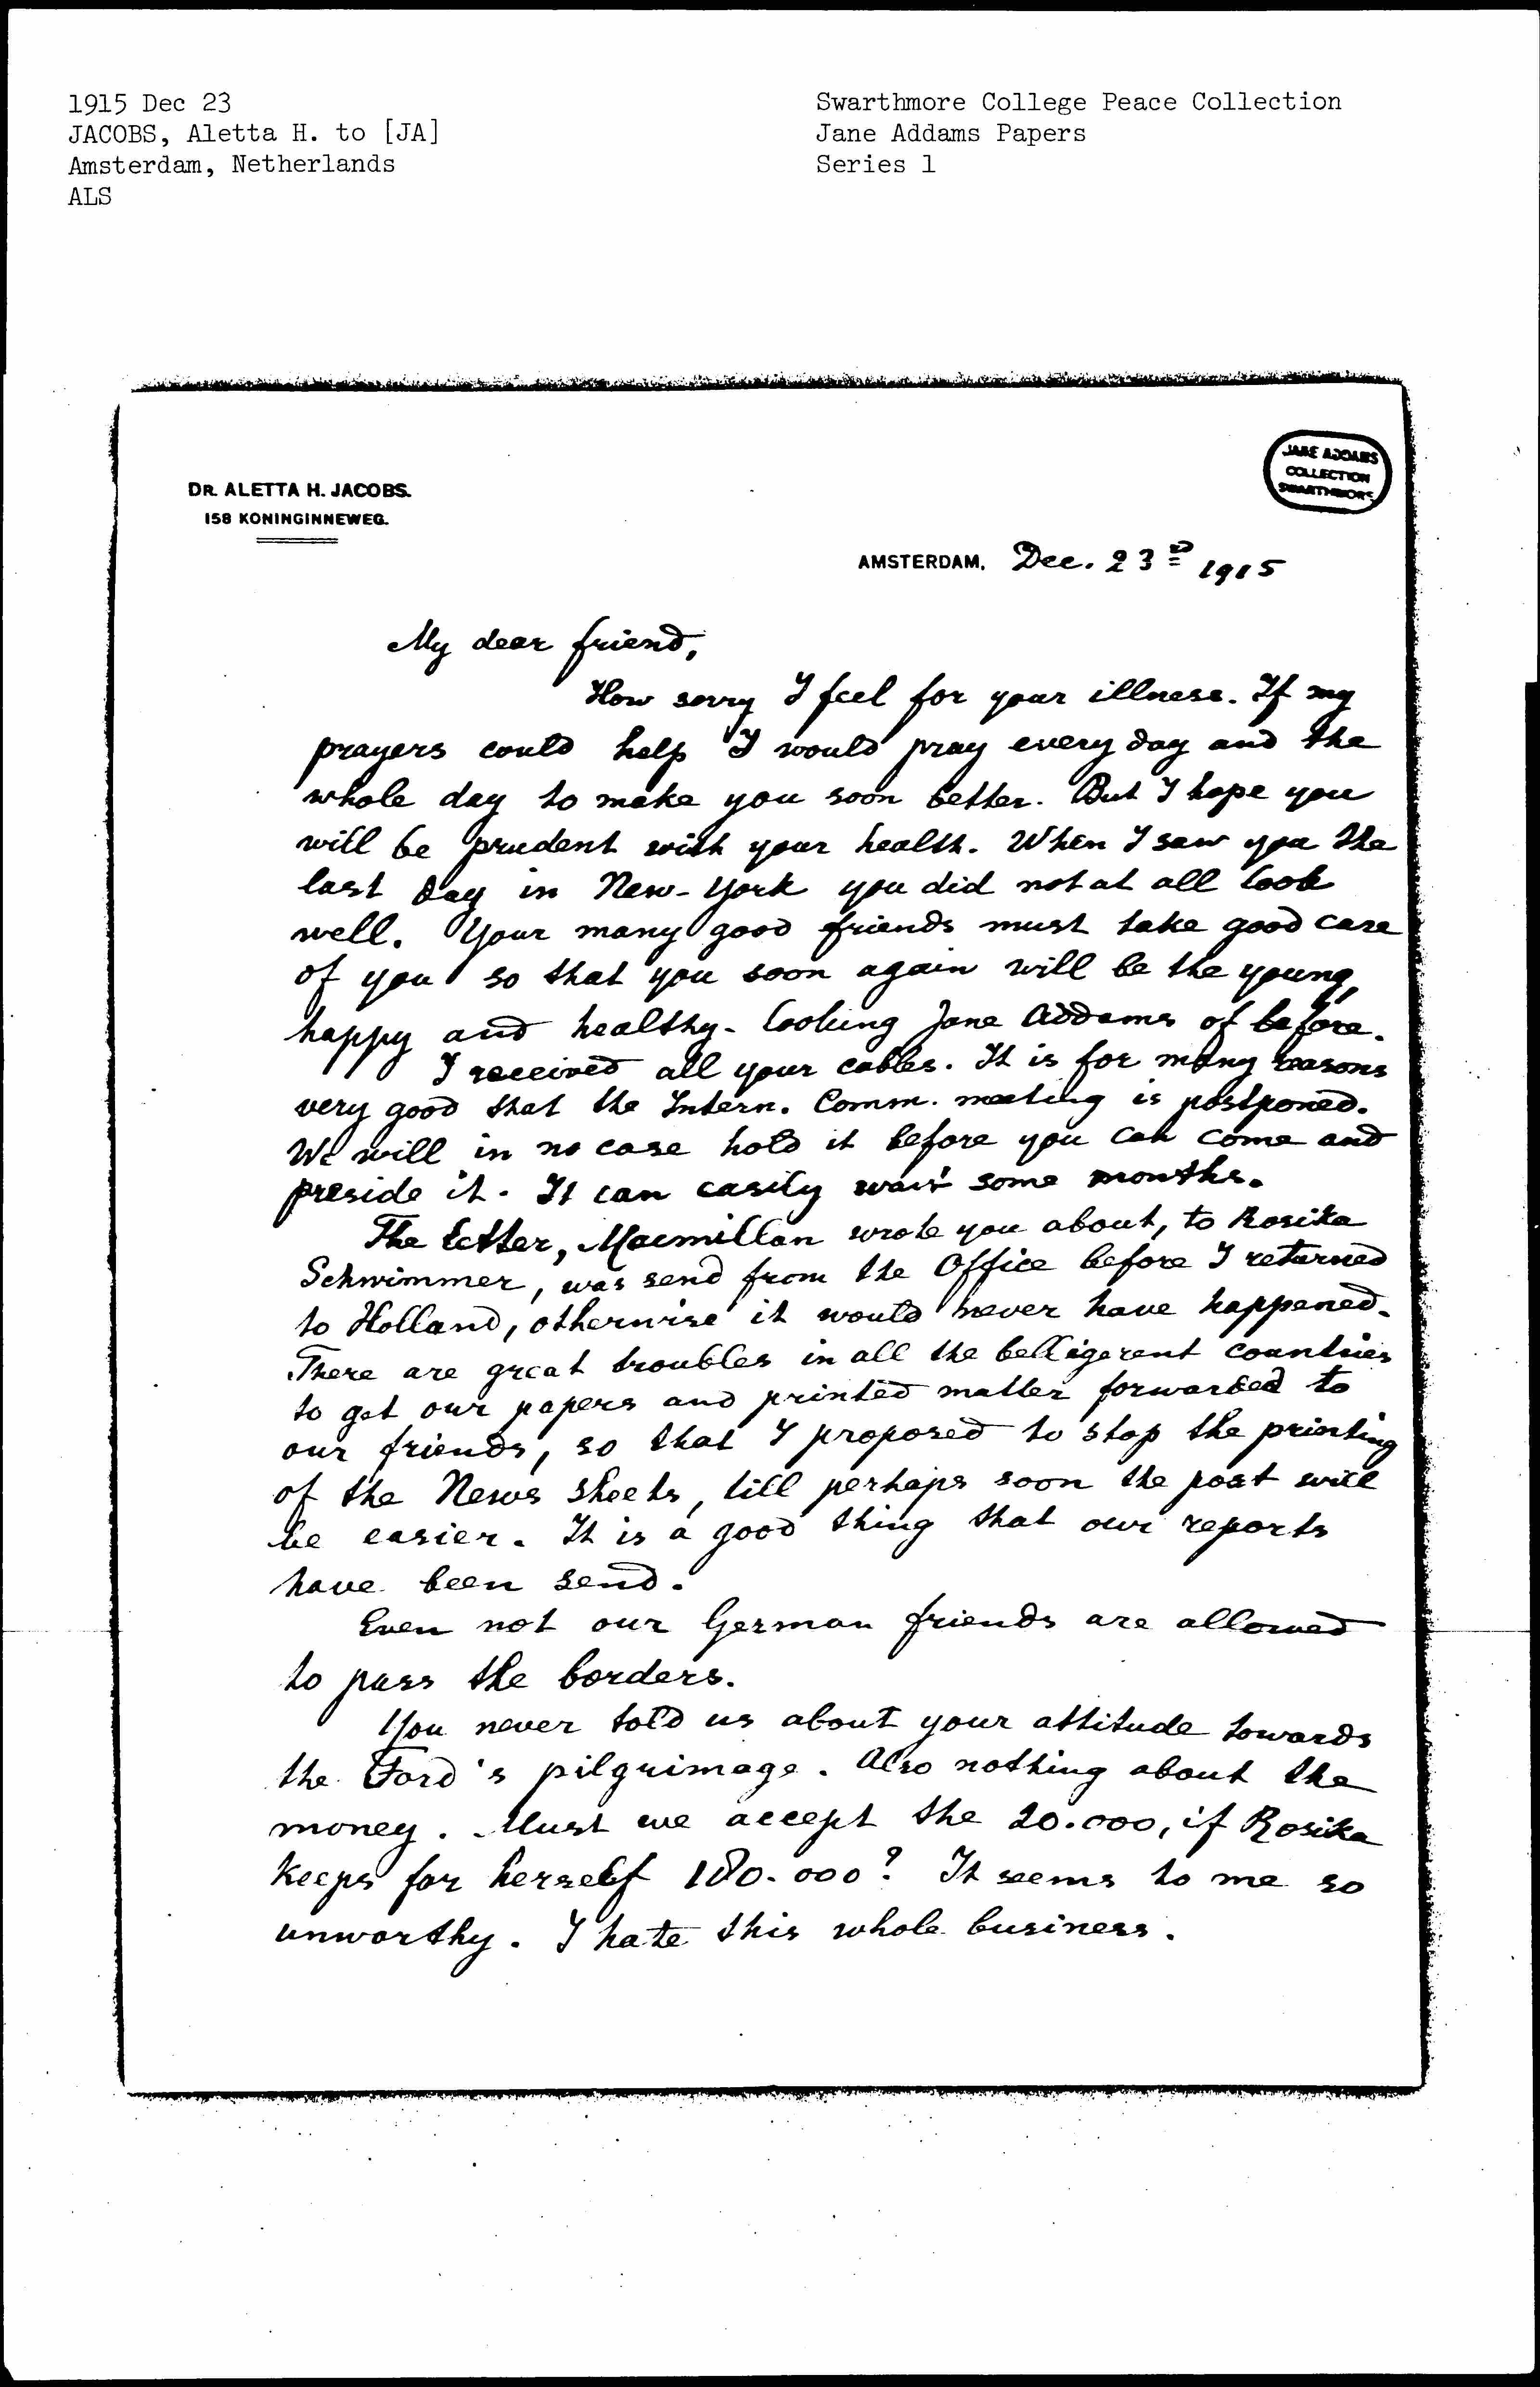 1915 Dec 23
JACOBS, Aletta H. to [JA]
Amsterdam, Netherlands
ALS
Swarthmore College Peace Collection
Jane Addams Papers
Series 1
JANE ADDAMS
COLLECTION
SWARTHMORE
DR. ALETTA H. JACOBS.
158 KONINGINNEWEG.
AMSTERDAM, Dec. 23D 1915
My dear friend,
How sorry I feel for your illness. If my
prayers could help I would pray every day and the
whole day to make you soon better. But I hope you
will be prudent with your health. When I saw you the
last day in New-York you did not at all look
well. Your many good friends must take good care
of you so that you soon again will be the young,
happy and healthy-looking Jane Addams of before.
I received all your cables. It is for many reasons
very good that the Intern. Comm. meeting is postponed.
We will in no case hold it before you can come and
preside it. It can easily wait some months.
The letter, Macmillan wrote you about, to Rosika
Schwimmer, was send from the Office before I returned
to Holland, otherwise it would never have happened.
There are great troubles in all the belligerent countries
to get our papers and printed matter forwarded to
our friends, so that I proposed to stop the printing
of the News sheets, till perhaps soon the post will
be easier. It is a good thing that our reports
have been send.
Even not our German friends are allowed
to pass the borders.
You never told us about your attitude towards
the Ford's pilgrimage. Also nothing about the
money. Must we accept the 20.000, if Rosika
keeps for herself 180.000? It seems to me so
unworthy. I hate this whole business.